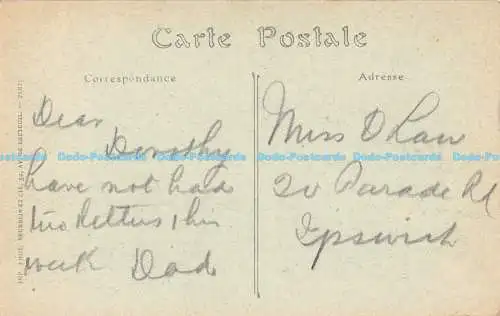 Carte Postale
Correspondance
Adresse
Dear
Dorothy
have not had
two letters this
week Dad
Miss D Law
20 Parade Rd
Ipswich
Dodo-Postcards Dodo-Postcards Dodo-Postcards Dodo-Postcards Dodo-Postcards Dodo-Postcards